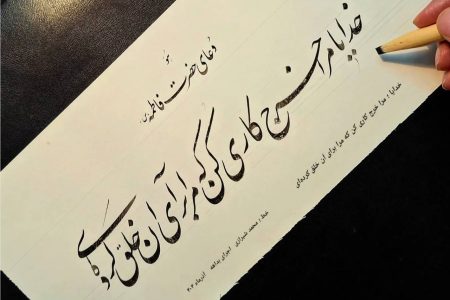 دعای حضرت فاطمه (س)
خدایا مرا خرج کاری کن که مرا برای آن خلق کرده‌ای
خدایا ؛ مرا خرج کاری کن که مرا برای آن خلق کرده‌ای
خط : محمد شیرازی اجرای بداهه آذرماه ۴۰۳